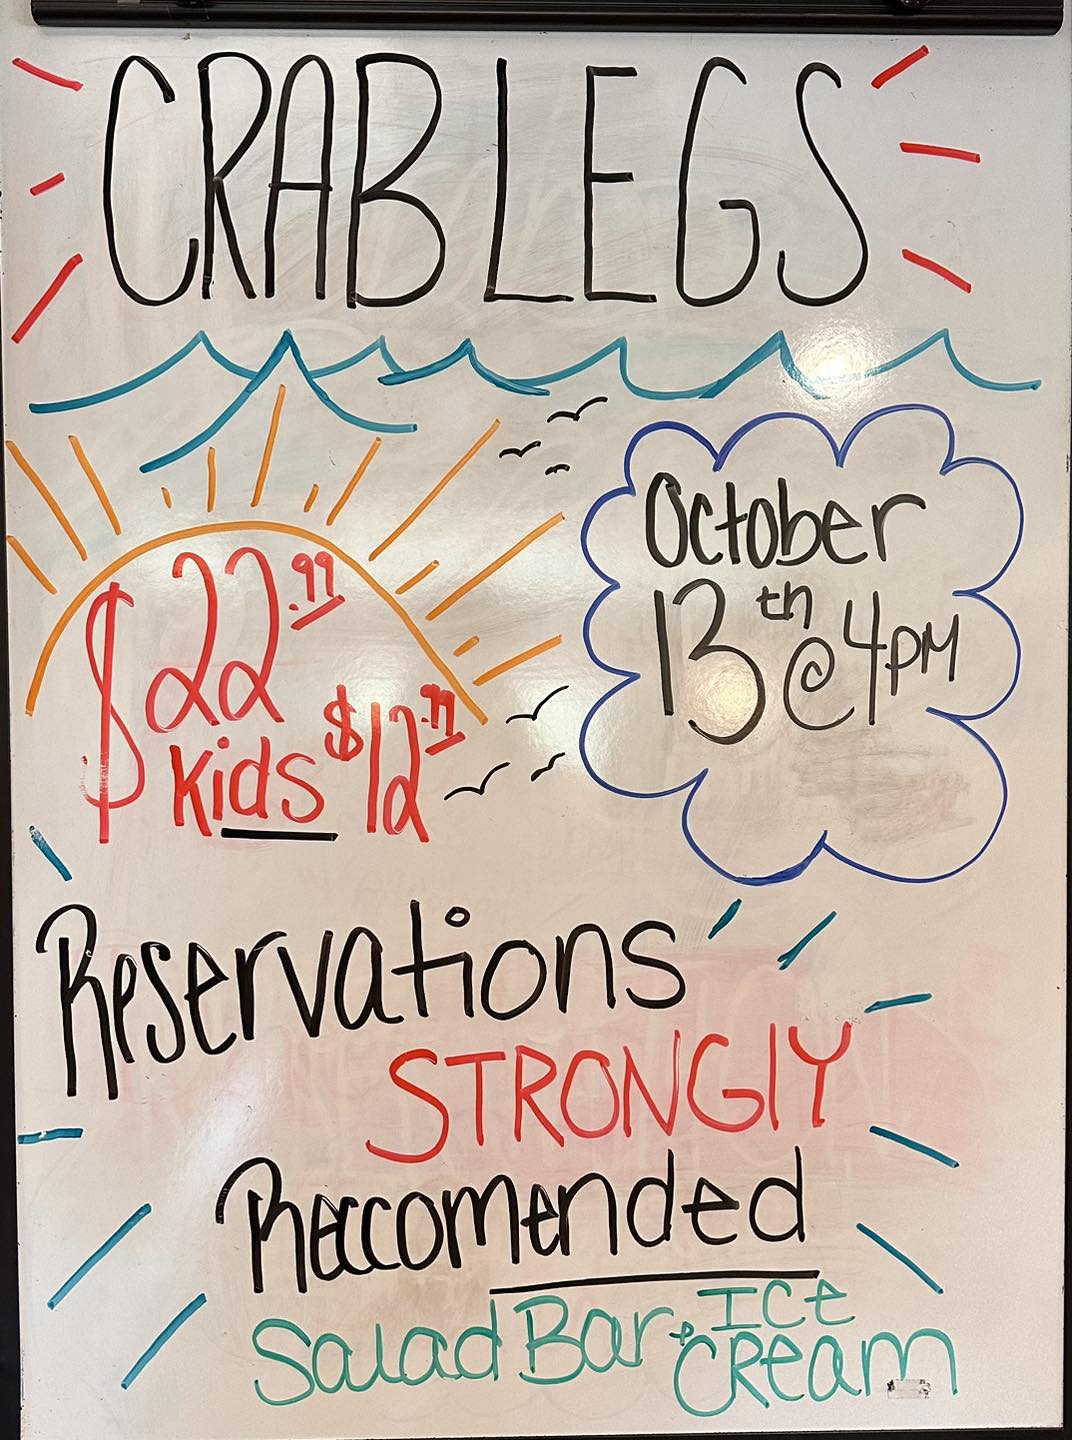 CRAB LEGS
October
13th @ 4PM
$22.99
kids $12.99
Reservations
STRONGLY
Reccomended
Salad Bar + Ice
CREam